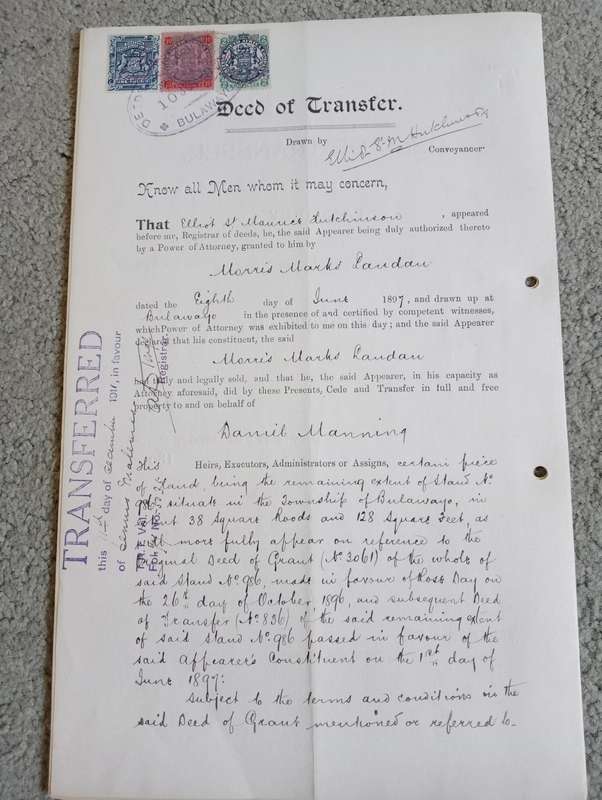 BULAWAYO
Deed of Transfer.
Drawn by Elliot St. M Hutchinson
Conveyancer
Know all Men whom it may concern,
That Elliot St Maurice Hutchinson, appeared
before me, Registrar of deeds, he, the said Appearer being duly authorized thereto
by a Power of Attorney, granted to him by
Morris Marks Landau
dated the Eighth day of June 1897, and drawn up at
Bulawayo in the presence of and certified by competent witnesses,
which Power of Attorney was exhibited to me on this day; and the said Appearer
declared that his constituent, the said
Morris Marks Landau
truly and legally sold, and that he, the said Appearer, in his capacity as
Attorney aforesaid, did by these Presents, Cede and Transfer in full and free
property to and on behalf of
Daniel Manning
His Heirs, Executors, Administrators or Assigns, certain piece
of Land, being the remaining extent of Stand No
986 situate in the Township of Bulawayo, in
38 Square Roods and 128 Square Feet, as
will more fully appear on reference to the
Original Deed of Grant (No 3061) of the whole of
said Stand No 986, made in favour of Ross Day on
the 26th day of October 1896, and subsequent Deed
of Transfer (No 836) of the said remaining extent
of said Stand No 986 passed in favour of the
said Appearer's Constituent on the 1st day of
June 1897:
Subject to the terms and conditions in the
said Deed of Grant mentioned or referred to-
TRANSFERRED
this day of 191, in favour
of
Registrar